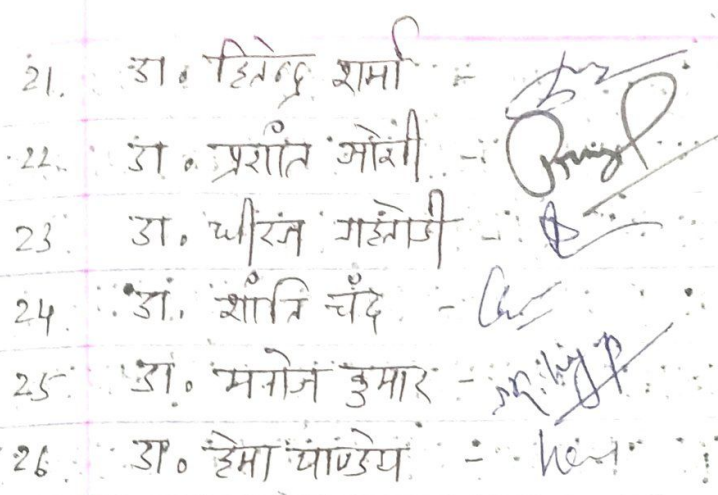 21. डा. हितेन्द्र शर्मा -
22. डा. प्रशांत जोशी -
23. डा. धीरज गहतोडी -
24. डा. शांति चँद -
25. डा. मनोज कुमार -
26. डा. हेमा पाण्डेय -